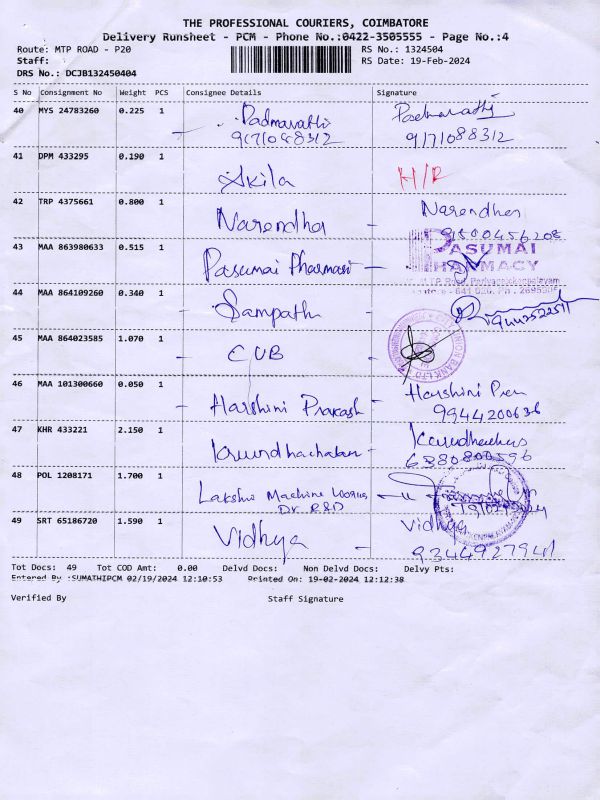 THE PROFESSIONAL COURIERS, COIMBATORE
Delivery Runsheet - PCM - Phone No.:0422-3505555 - Page No.:4
Route: MTP ROAD - P20
RS No.: 1324504
Staff:
RS Date: 19-Feb-2024
DRS No.: DCJB132450404
S No Consignment No Weight PCS Consignee Details Signature
40 MYS 24783260 0.225 1 Padmavathi
9171088312 9171088312
41 DPM 433295 0.190 1 Akila H/R
42 TRP 4375661 0.800 1 Narendha Narendhen
9500456208
43 MAA 863980633 0.515 1 Pasumai Pharmasi PASUMAI
PHARMACY
44 MAA 864109260 0.340 1 Sampath
45 MAA 864023585 1.070 1 CUB
46 MAA 101300660 0.050 1 Harshini Prakash Harshini
9944200636
47 KHR 433221 2.150 1
6380800596
48 POL 1208171 1.700 1 Lakshmi Machine Works
49 SRT 65186720 1.590 1 Vidhya Vidhya
9344927941
Tot Docs: 49 Tot COD Amt: 0.00 Delvd Docs: Non Delvd Docs: Delvy Pts:
Entered By :SUMATHIPCM 02/19/2024 12:10:53 Printed On: 19-02-2024 12:12:38
Verified By Staff Signature